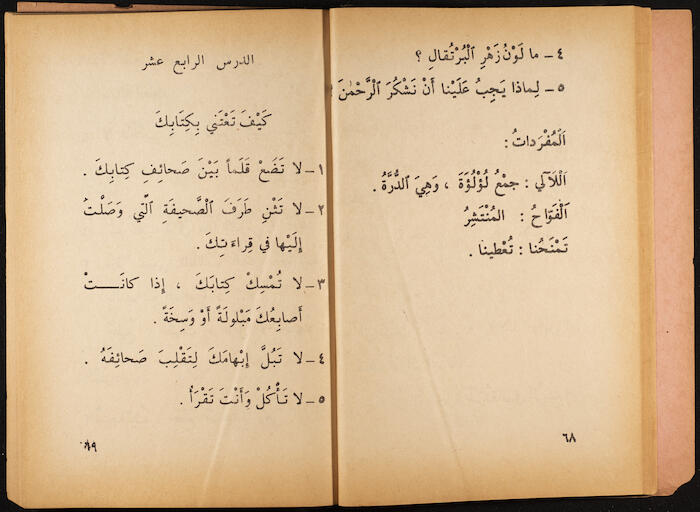 ٤ - ما لَوْنُ زَهْرِ ٱلْبُرْتُقالِ ؟
٥ - لِماذا يَجِبُ عَلَيْنا أَنْ نَشْكُرَ ٱلرَّحْمٰنَ ؟
اَلْمُفْرَداتُ :
اَللَّآلي : جمْعُ لُؤْلُؤَةَ ، وَهِيَ ٱلدُّرَّةُ .
اَلْفَوّاحُ : المُنْتَشِرُ
تَمْنَحُنا : تُعْطينا .
٦٨
الدرس الرابع عشر
كَيْفَ تَعْتَني بِكِتابِكَ
١ - لا تَضَعْ قَلَماً بَيْنَ صَحائِفِ كِتابِكَ .
٢ - لا تَثْنِ طَرَفَ ٱلصَّحيفَةِ ٱلَّتي وَصَلْتَ
إِلَيْها في قِراءَتِكَ .
٣ - لا تُمْسِكْ كِتابَكَ ، إِذا كانَـــتْ
أَصابِعُكَ مَبْلولَةً أَوْ وَسِخَةً .
٤ - لا تَبُلَّ إِبْهامَكَ لِتَقْلِبَ صَحائِفَهُ .
٥ - لا تَأْكُلْ وَأَنْتَ تَقْرَأُ .